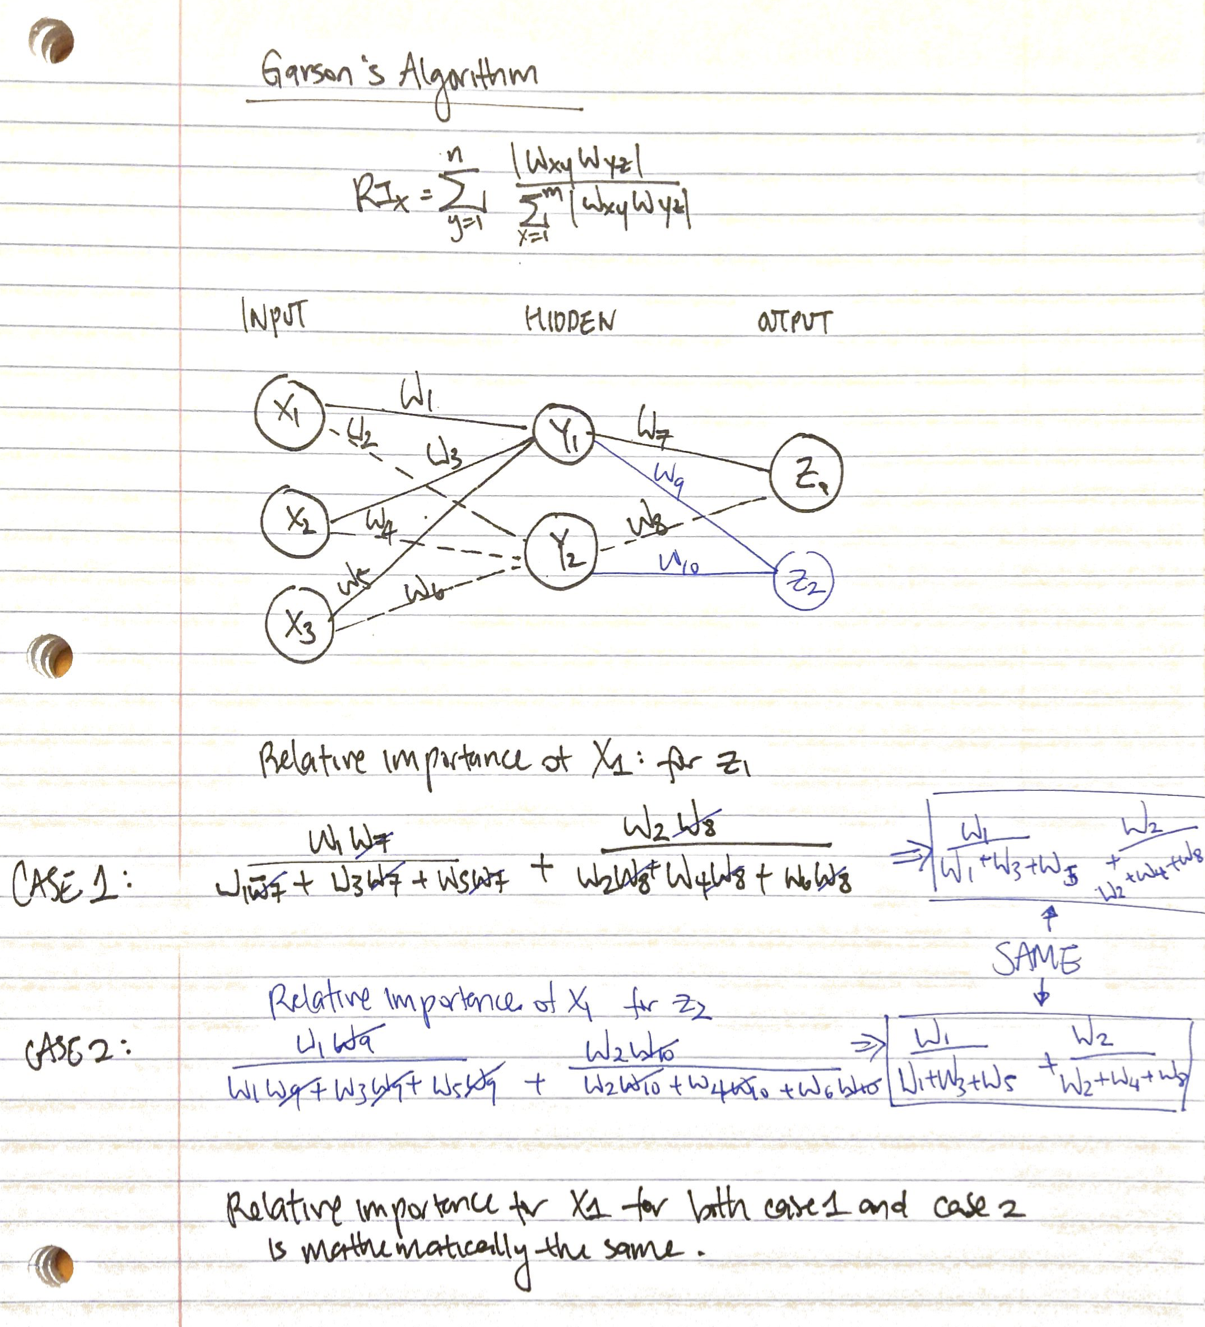 Garson's Algorithm
RIx = Σ_{y=1}^{n} |Wxy Wyz| / Σ_{x=1}^{m} |Wxy Wyz|
INPUT HIDDEN OUTPUT
X1 W1 Y1 W7 Z1
W2 W3 W9
X2 W4 Y2 W8
W5 W6 W10 Z2
X3
Relative importance of X1: for Z1
CASE 1: W1 W7 / W1W7 + W3W7 + W5W7 + W2 W8 / W2W8 + W4W8 + W6W8 ⇒ W1 / W1+W3+W5 + W2 / W2+W4+W8
SAME
Relative importance of X1 for Z2
CASE 2: W1 W9 / W1W9 + W3W9 + W5W9 + W2W10 / W2W10 + W4W10 + W6W10 ⇒ W1 / W1+W3+W5 + W2 / W2+W4+W8
Relative importance for X1 for both case 1 and case 2
is mathematically the same.